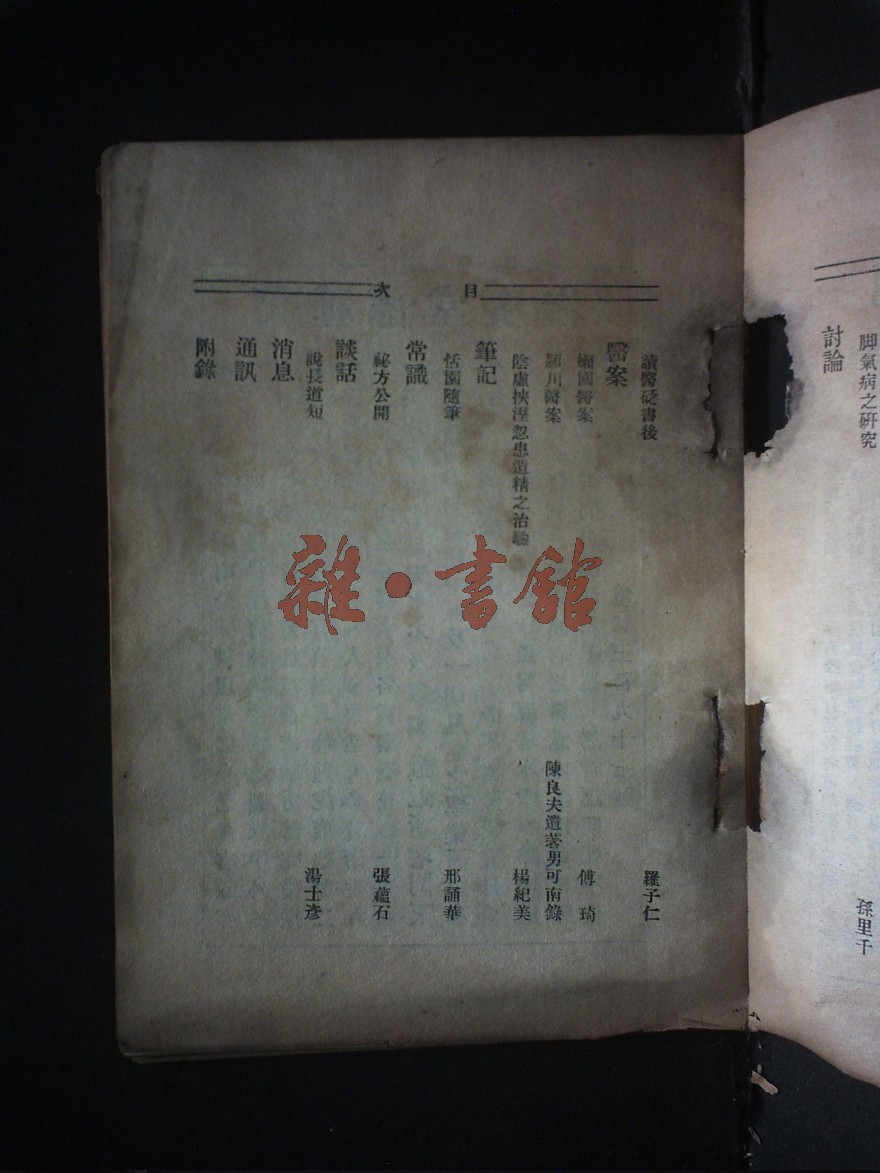 脚氣病之研究 孫里千
討論
目次
讀醫砭書後 羅子仁
醫案
嬾園醫案 傅琦
潁川醫案 陳良夫遺著男可南錄
陰虛挾溼忽患遺精之治驗 楊紀美
筆記
恬園隨筆 邢誦華
常識
祕方公開 張蘊石
談話
說長道短 湯士彥
消息
通訊
附錄
雜·書館